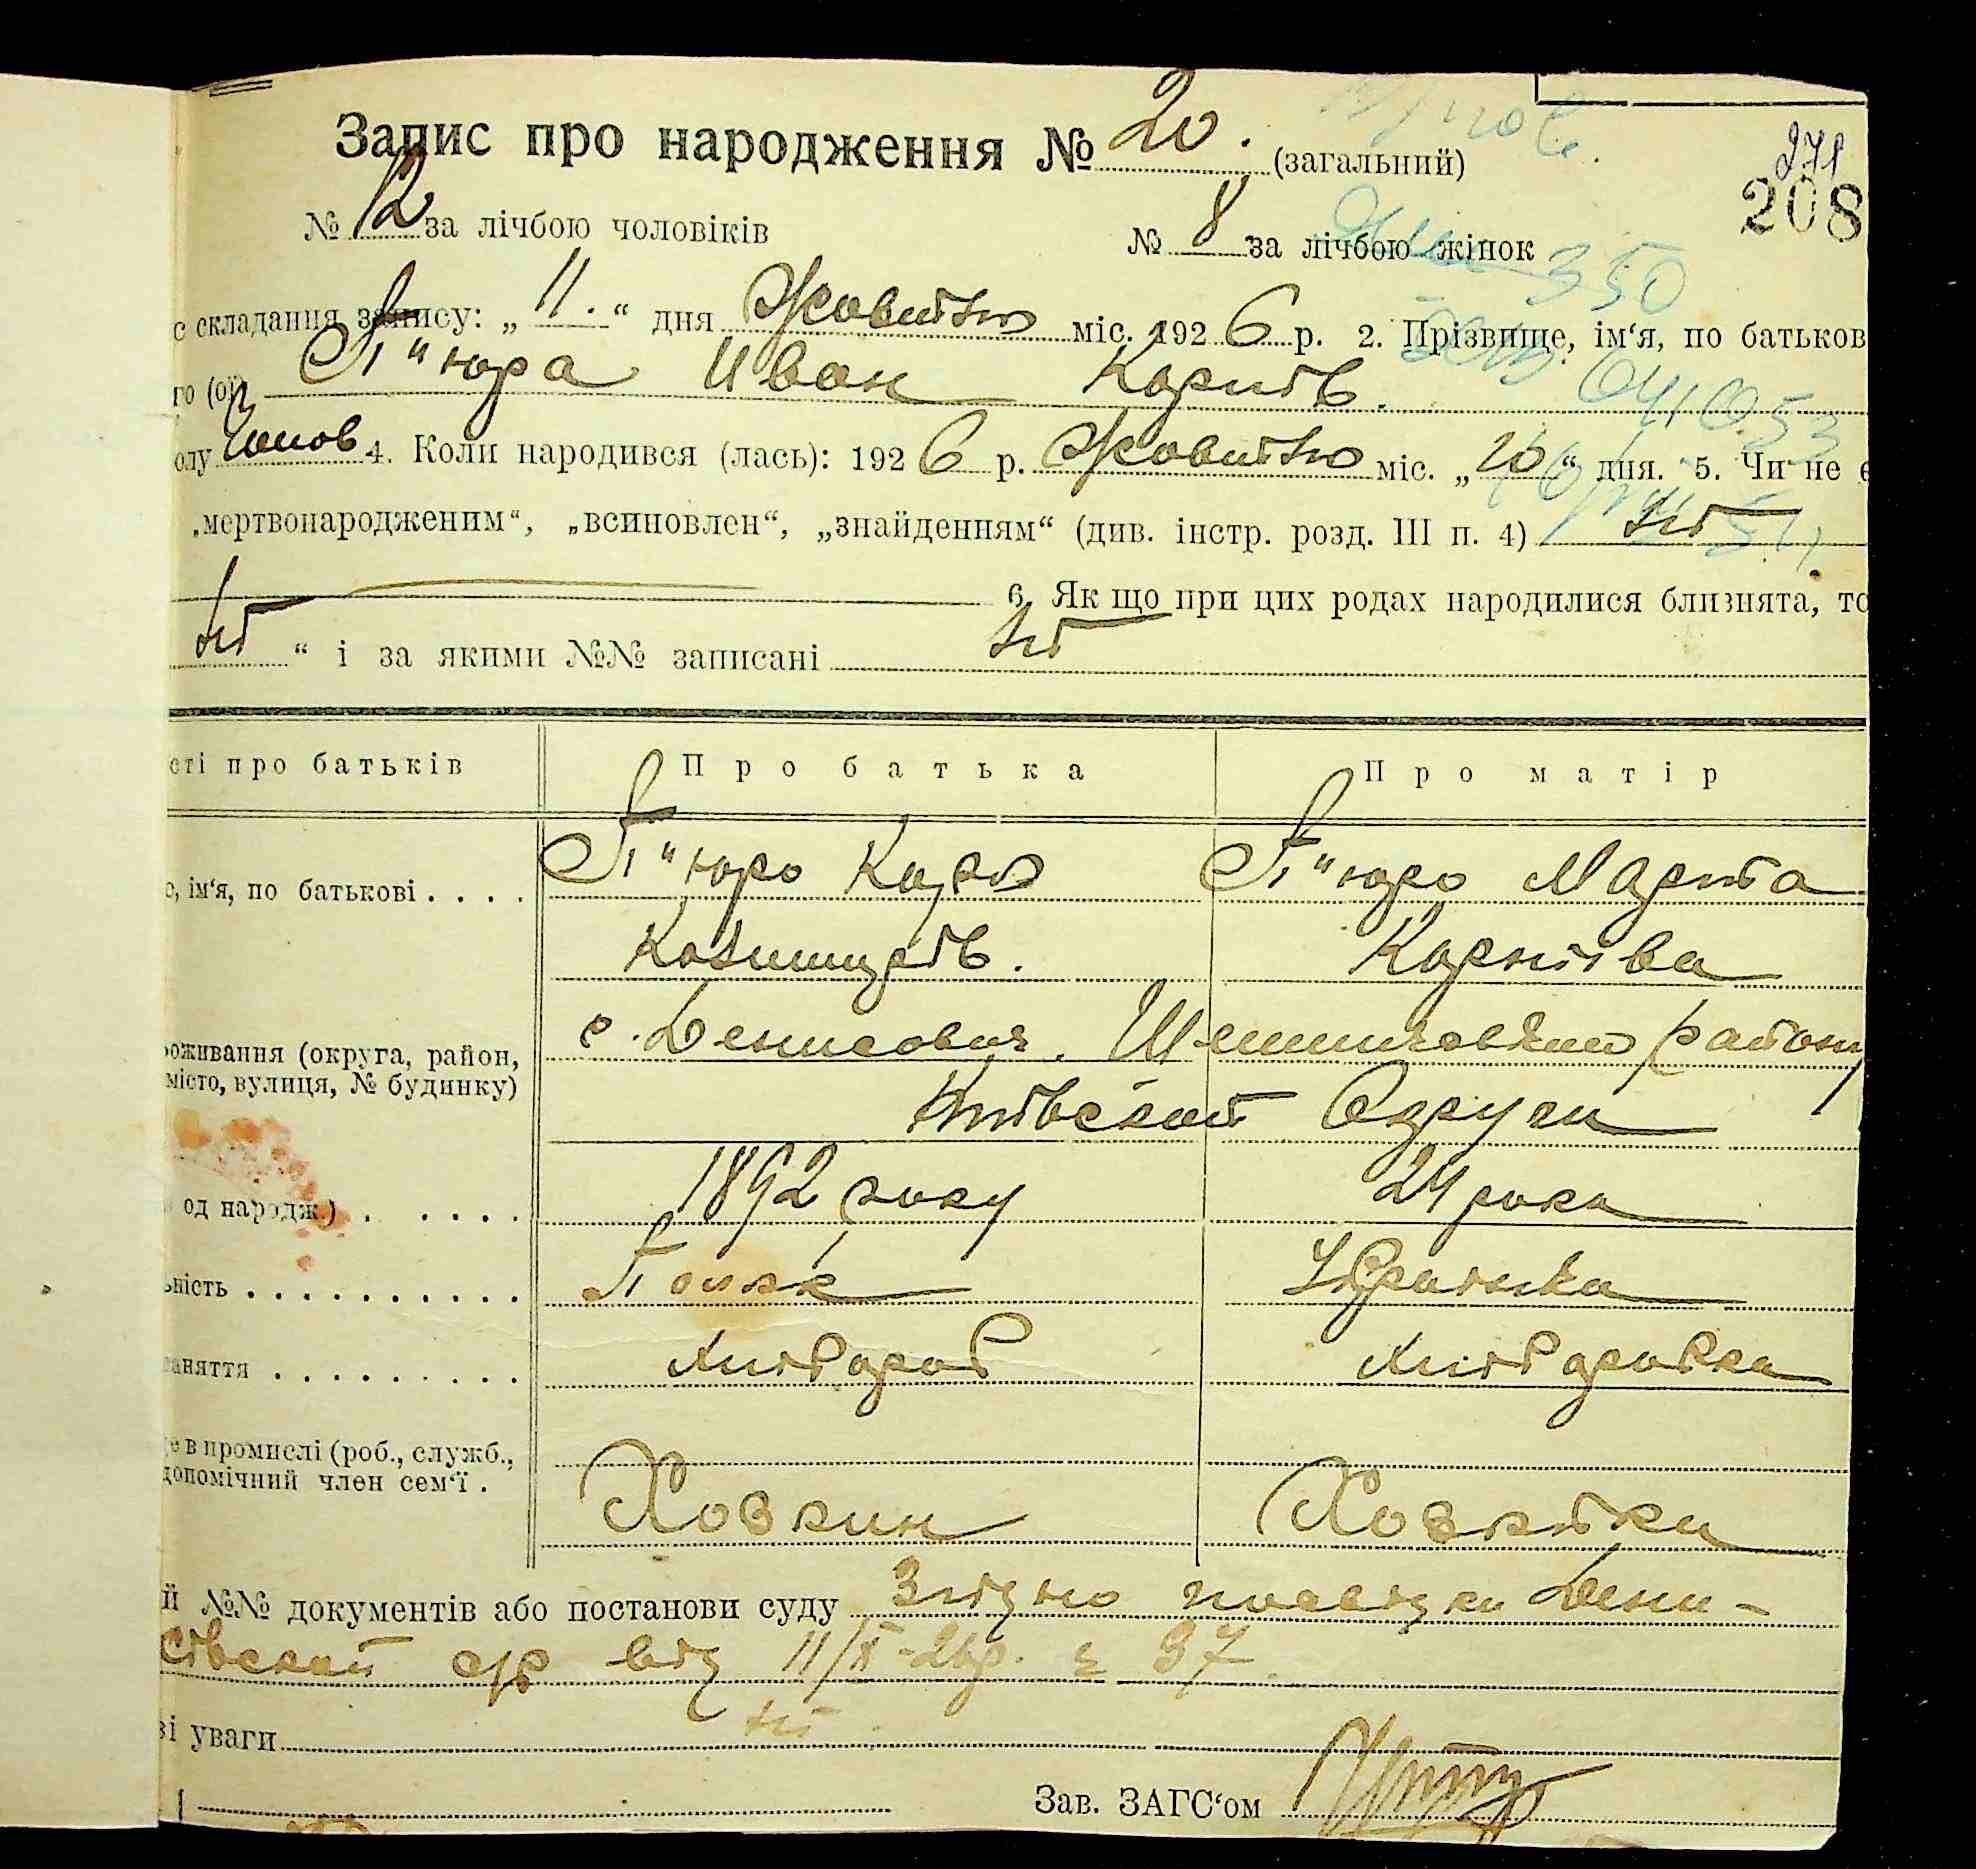 271
Запис про народження № 20. (загальний)
208
№ 12 за лічбою чоловіків № 8 за лічбою жінок
350
с складання запису: „ 11. “ дня Жовтню міс. 1926 р. 2. Прізвище, ім‘я, по батьков
го (ої) П"юра Иван Карпів.
олу Чолов 4. Коли народився (лась): 1926 р. Жовтню міс. „10“ дня. 5. Чи не є
„мертвонародженим“, „всиновлен“, „знайденням“ (див. інстр. розд. III п. 4) ні
6. Як що при цих родах народилися близнята, то
ні “ і за якими №№ записані ні
сті про батьків Про батька Про матір
о, ім‘я, по батькові . . . . П"юро Карпо П"юро Марита
Казимирів. Карпівва
с. Денисович. Шепиличеський району
оживання (округа, район,
місто, вулиця, № будинку)
Київской Округи
од народж.) . . . . . 1892 року 24 роки
ьність . . . . . . . . . . . Поляк Украінка
аняття . . . . . . . . . . Хлібороб Хліборобка
е в промислі (роб., служб.,
допомічний член сем‘ї .
Хозяин Хозяйка
й №№ документів або постанови суду Згідно посвідки Дени-
сівской с/р від 11/X-26р. № 37.
ві уваги ні
Зав. ЗАГС‘ом